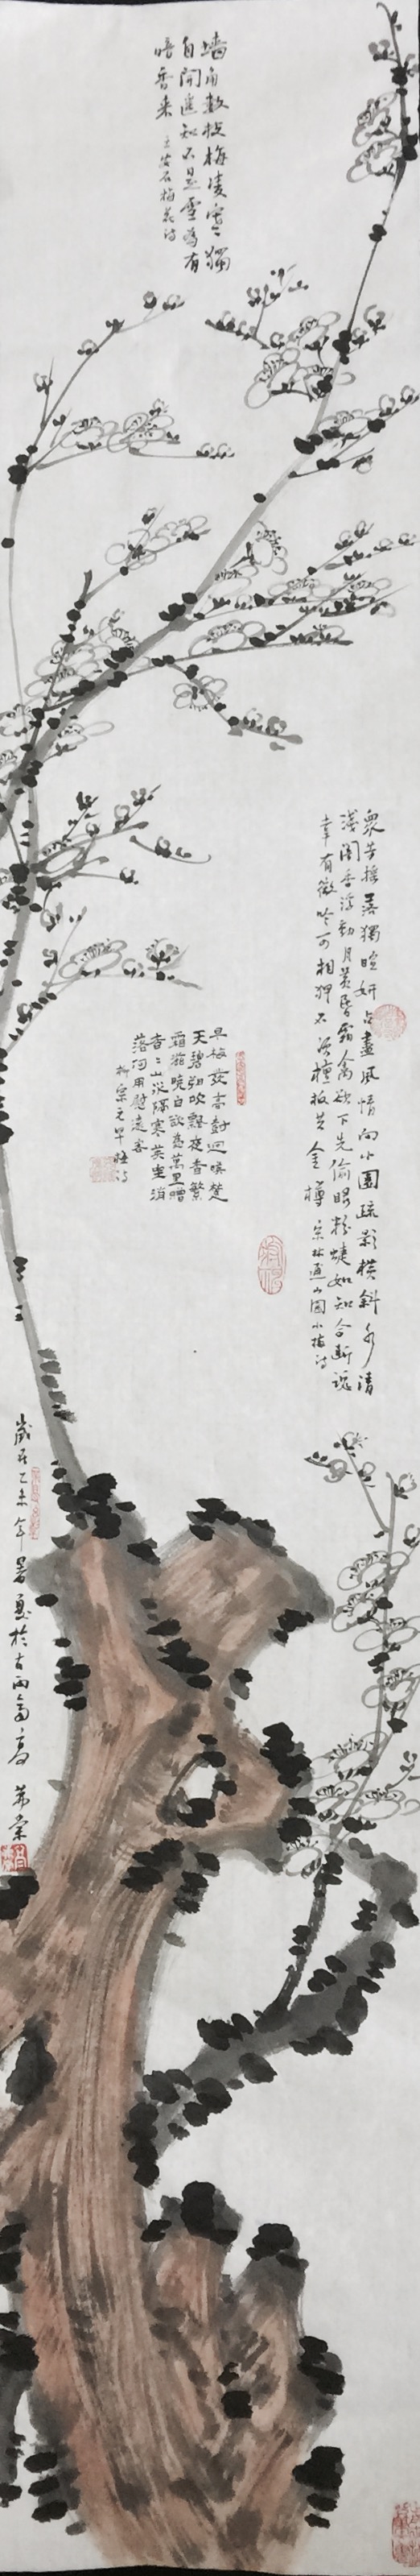 墙角数枝梅凌寒独
自開遥知不是雪為有
暗香来 王安石梅花诗
衆芳摇落獨暄妍占盡風情向小園疏影横斜水清
浅闇香浮動月黄昏霜禽欲下先偷眼粉蝶如知合断魂
幸有微吟可相狎不須檀板共金樽 宋林逋山園小梅诗
早梅發高樹迥映楚
天碧朔吹飄夜香繁
霜滋曉白欲為萬里贈
杳々山水隔寒英坐消
落何用慰遠客
柳宗元早梅诗
歲在乙未年暑夏於古雨